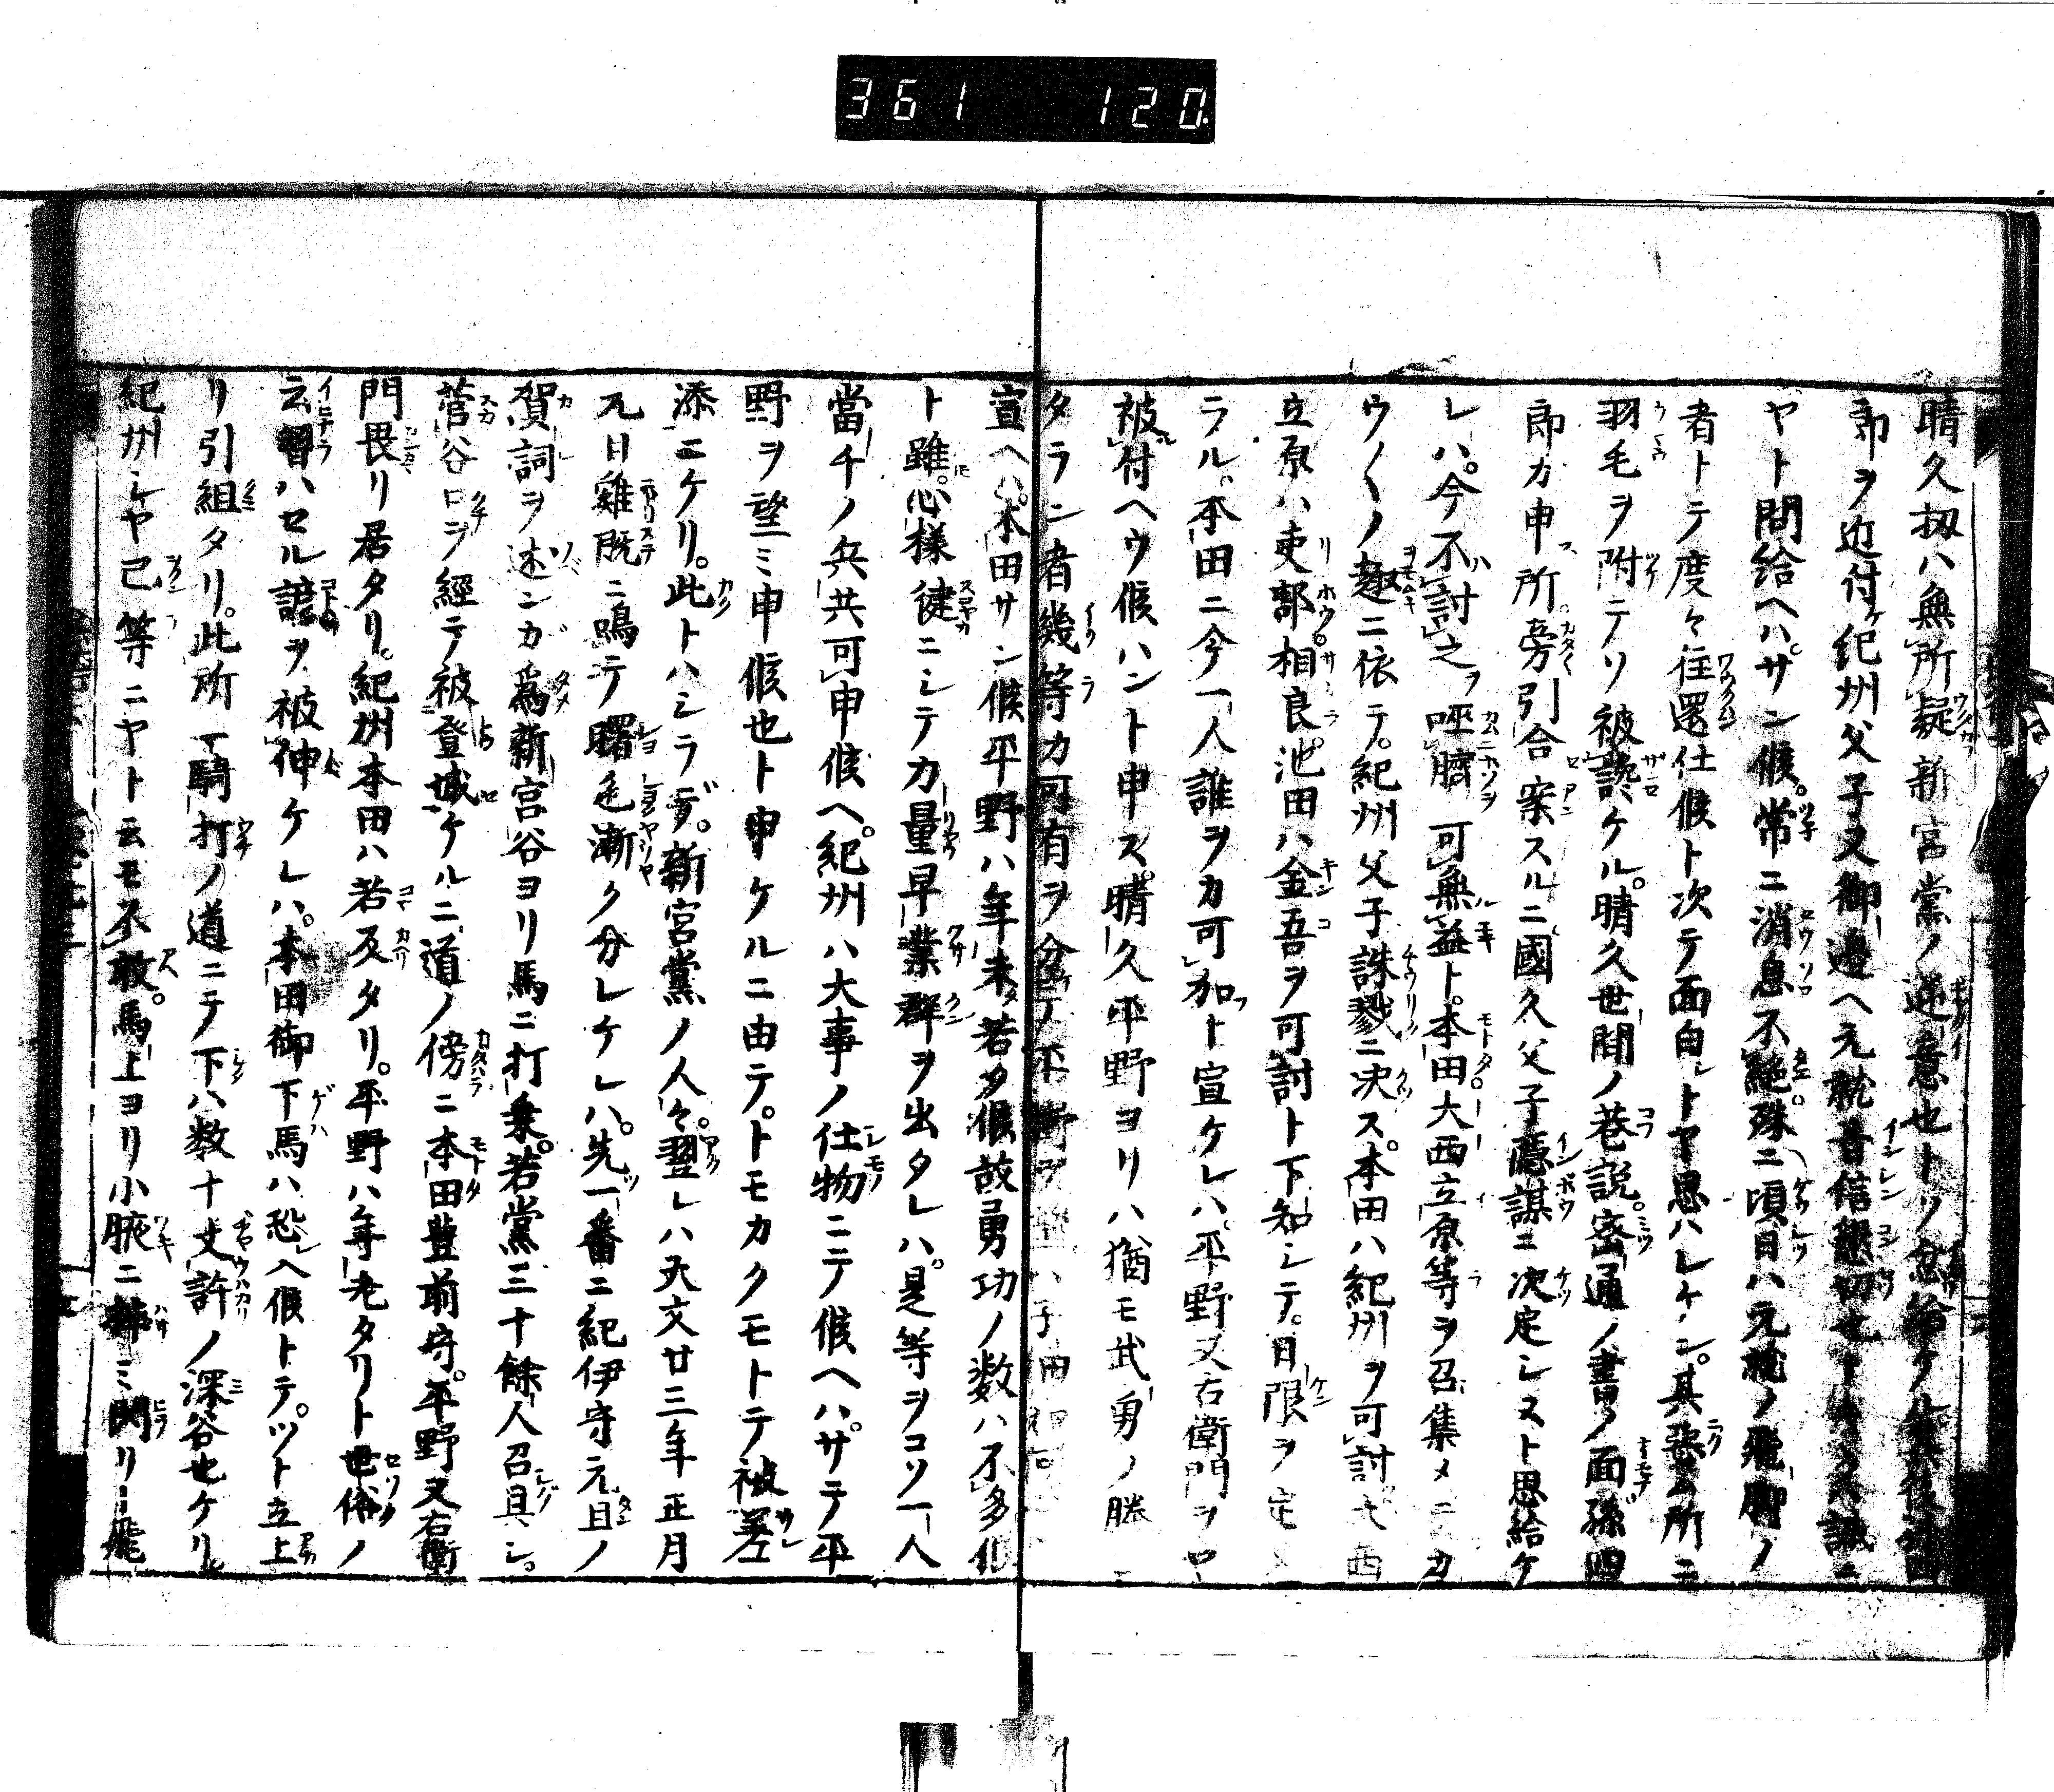 361 120
晴久扨ハ無所疑新宮党ノ逆意也トソ忿給ケル其後孫四
郎ヲ近付ケ紀州父子又御邊ヘ元就音信懇切也ト
ヤト問給ヘハ。サン候。常ニ消息不絶。殊ニ頃日ハ元就ノ飛脚ノ
者トテ度々往還仕候ト次テ面白シトヤ思ハレケン。其悪ム所ニ
羽毛ヲ附テソ被讒ケル。晴久世間ノ巷説。密通ノ書ノ面孫四
郎カ申ス所。旁引合案スルニ國久父子隠謀ニ決定シヌト思給ケ
レハ。今不討之ヲ噬臍可無益ト。本田大西立原等ヲ召集メニカ
ウ〳〵ノ趣ニ依テ。紀州父子誅戮ニ決ス。本田ハ紀州ヲ可討。大西
立原ハ吏部相良。池田ハ金吾ヲ可討ト下知シテ。日限ヲ定メ
ラル。本田ニ今一人誰ヲカ可加ト宣ケレハ。平野又右衛門ヲ
被付ヘウ候ハント申ス。晴久平野ヨリハ猶モ武勇ノ勝
タラン者幾等カ可有ヲ
宣ヘハ。本田サン候平野ハ年未若ク候故勇功ノ数ハ不多候
ト雖。心様健ニシテカ量早業群ヲ出タレハ。是等ヲコソ一人
當千ノ兵共可申候ヘ。紀州ハ大事ノ仕物ニテ候ヘハ。サテ平
野ヲ望ミ申候也ト申ケルニ由テ。トモカクモトテ被差
添ニケリ。此トハシラデ。新宮黨ノ人々。翌レハ天文廿三年正月
元日雞既ニ鳴テ曙色漸ク分レケレハ。先一番ニ紀伊守元旦ノ
賀詞ヲ述ンガ爲新宮谷ヨリ馬ニ打乗。若黨三十餘人召具シ。
菅谷口ヲ經テ被登城ケルニ。道ノ傍ニ本田豊前守。平野又右衛
門畏リ居タリ。紀州本田ハ若反タリ。平野ハ年老タリト世俗ノ
云習ハセル諺ヲ被伸ケレハ。本田御下馬ハ恐ヘ候トテ。ツト立上
リ引組タリ。此所一騎打ノ道ニテ下ハ数十丈許ノ深谷也ケリ。
紀州シヤ己等ニヤト云モ不敢。馬上ヨリ小腋ニ ミ閃リト飛